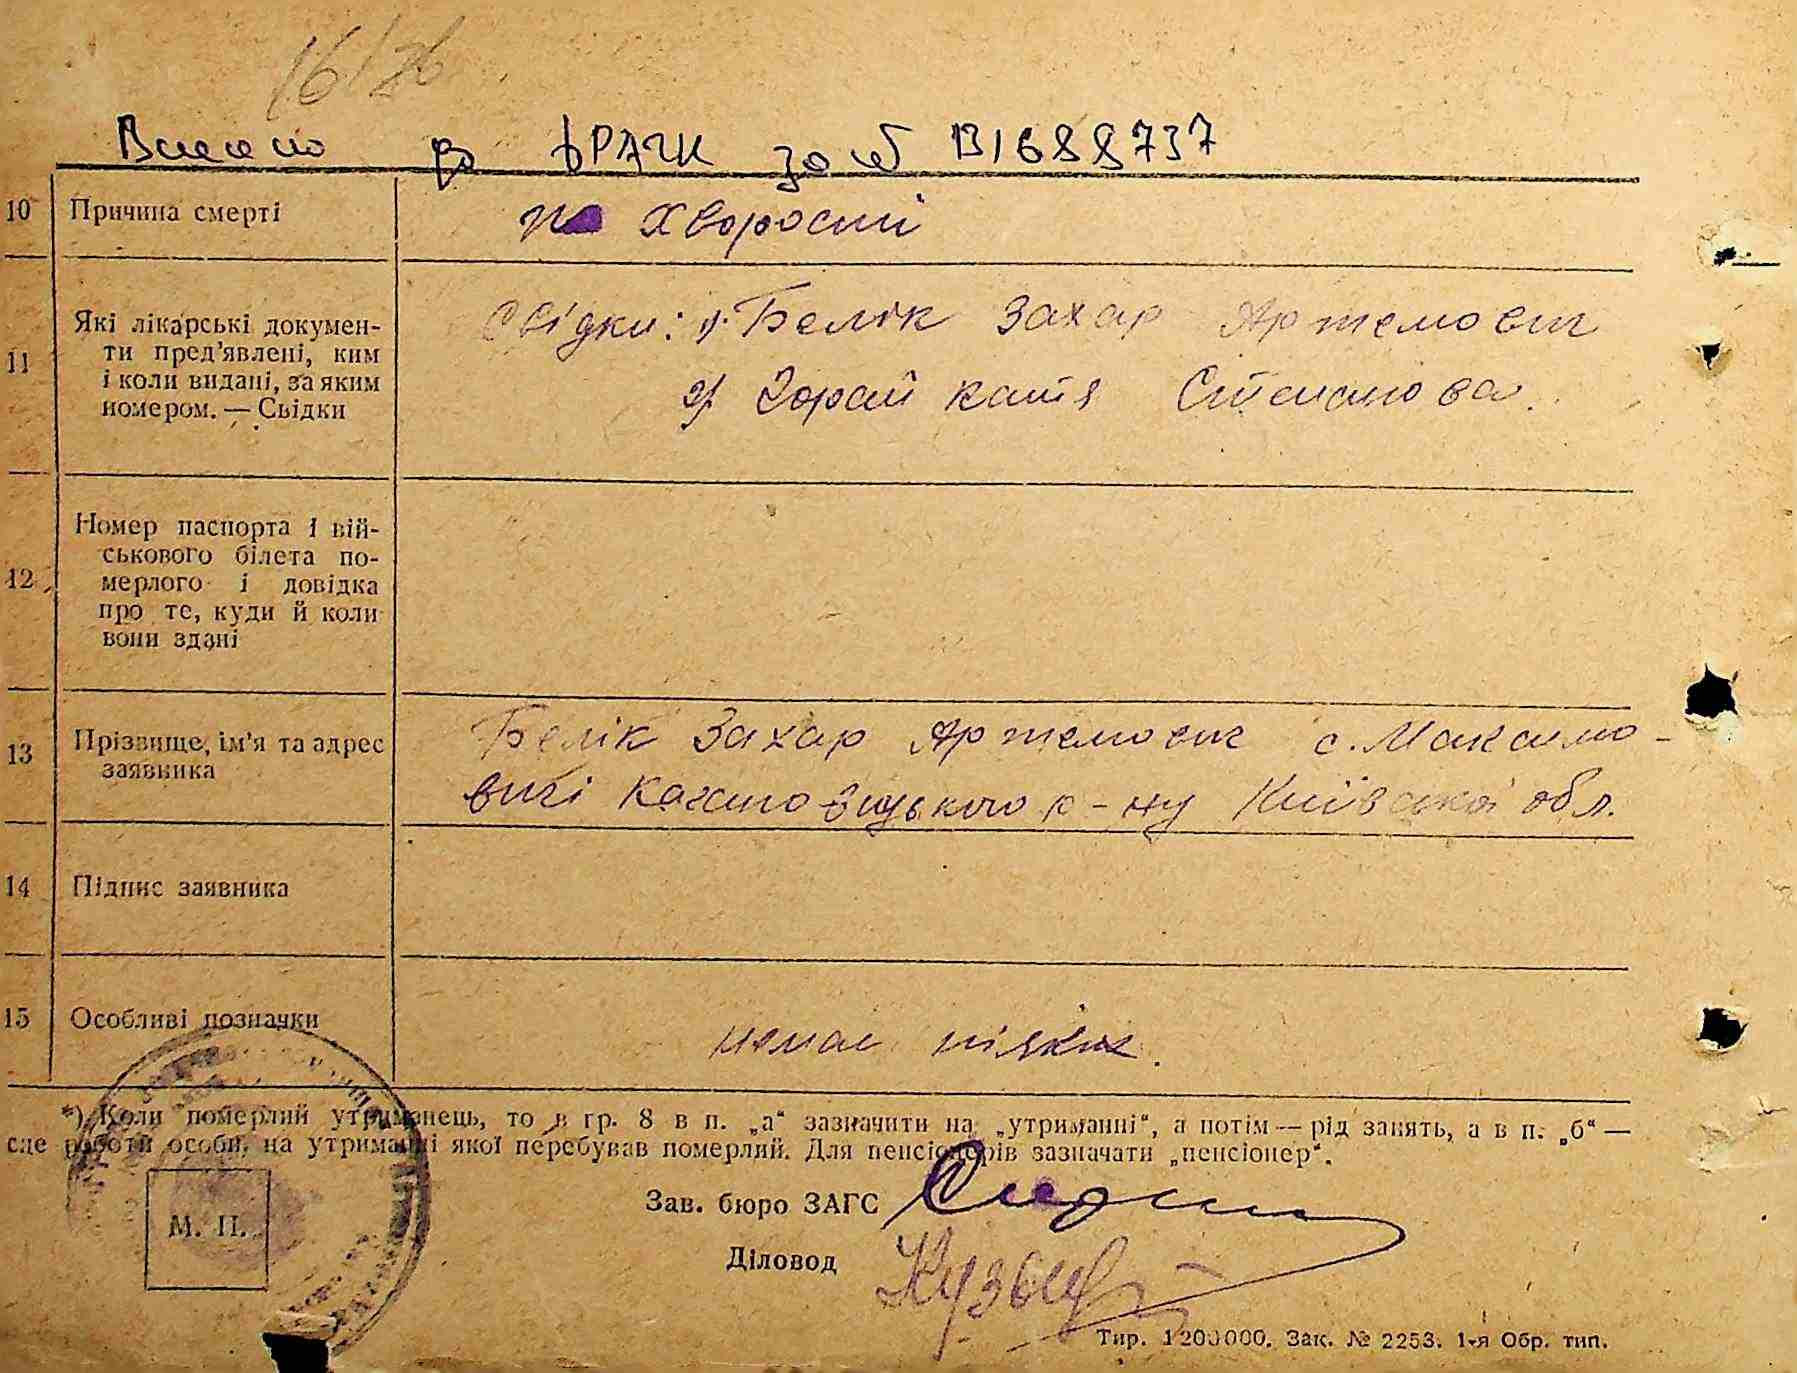 16/76
Внесено до ДРАЦС за № 131688737
10 Причина смерті по хворості
11 Які лікарські докумен-
ти пред'явлені, ким
і коли видані, за яким
номером. — Свідки
Свідки: 1). Белік Захар Артемович
2) Горай Катя Степанова.
12 Номер паспорта і вій-
ськового білета по-
мерлого і довідка
про те, куди й коли
вони здані
13 Прізвище, ім'я та адрес
заявника
Белік Захар Артемович с. Максимо-
вичі Кагановицького р-ну Київської обл.
14 Підпис заявника
15 Особливі позначки
немає ніяких.
*) Коли померлий утриманець, то в гр. 8 в п. „а“ зазначити на „утриманні“, а потім — рід занять, а в п. „б“ —
де роботи особи, на утриманні якої перебував померлий. Для пенсіонерів зазначати „пенсіонер“.
М. П.
Зав. бюро ЗАГС
Діловод
Тир. 1200000. Зак. № 2253. 1-я Обр. тип.